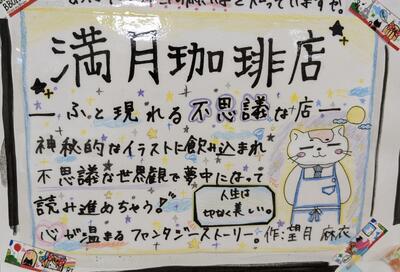 満月珈琲店
―ふと現れる不思議な店―
神秘的なイラストに飲み込まれ
不思議な世界観で夢中になって
読み進めちゃう!!
人生は
切なく美しい。
心が温まるファンタジーストーリー。作:望月 麻衣